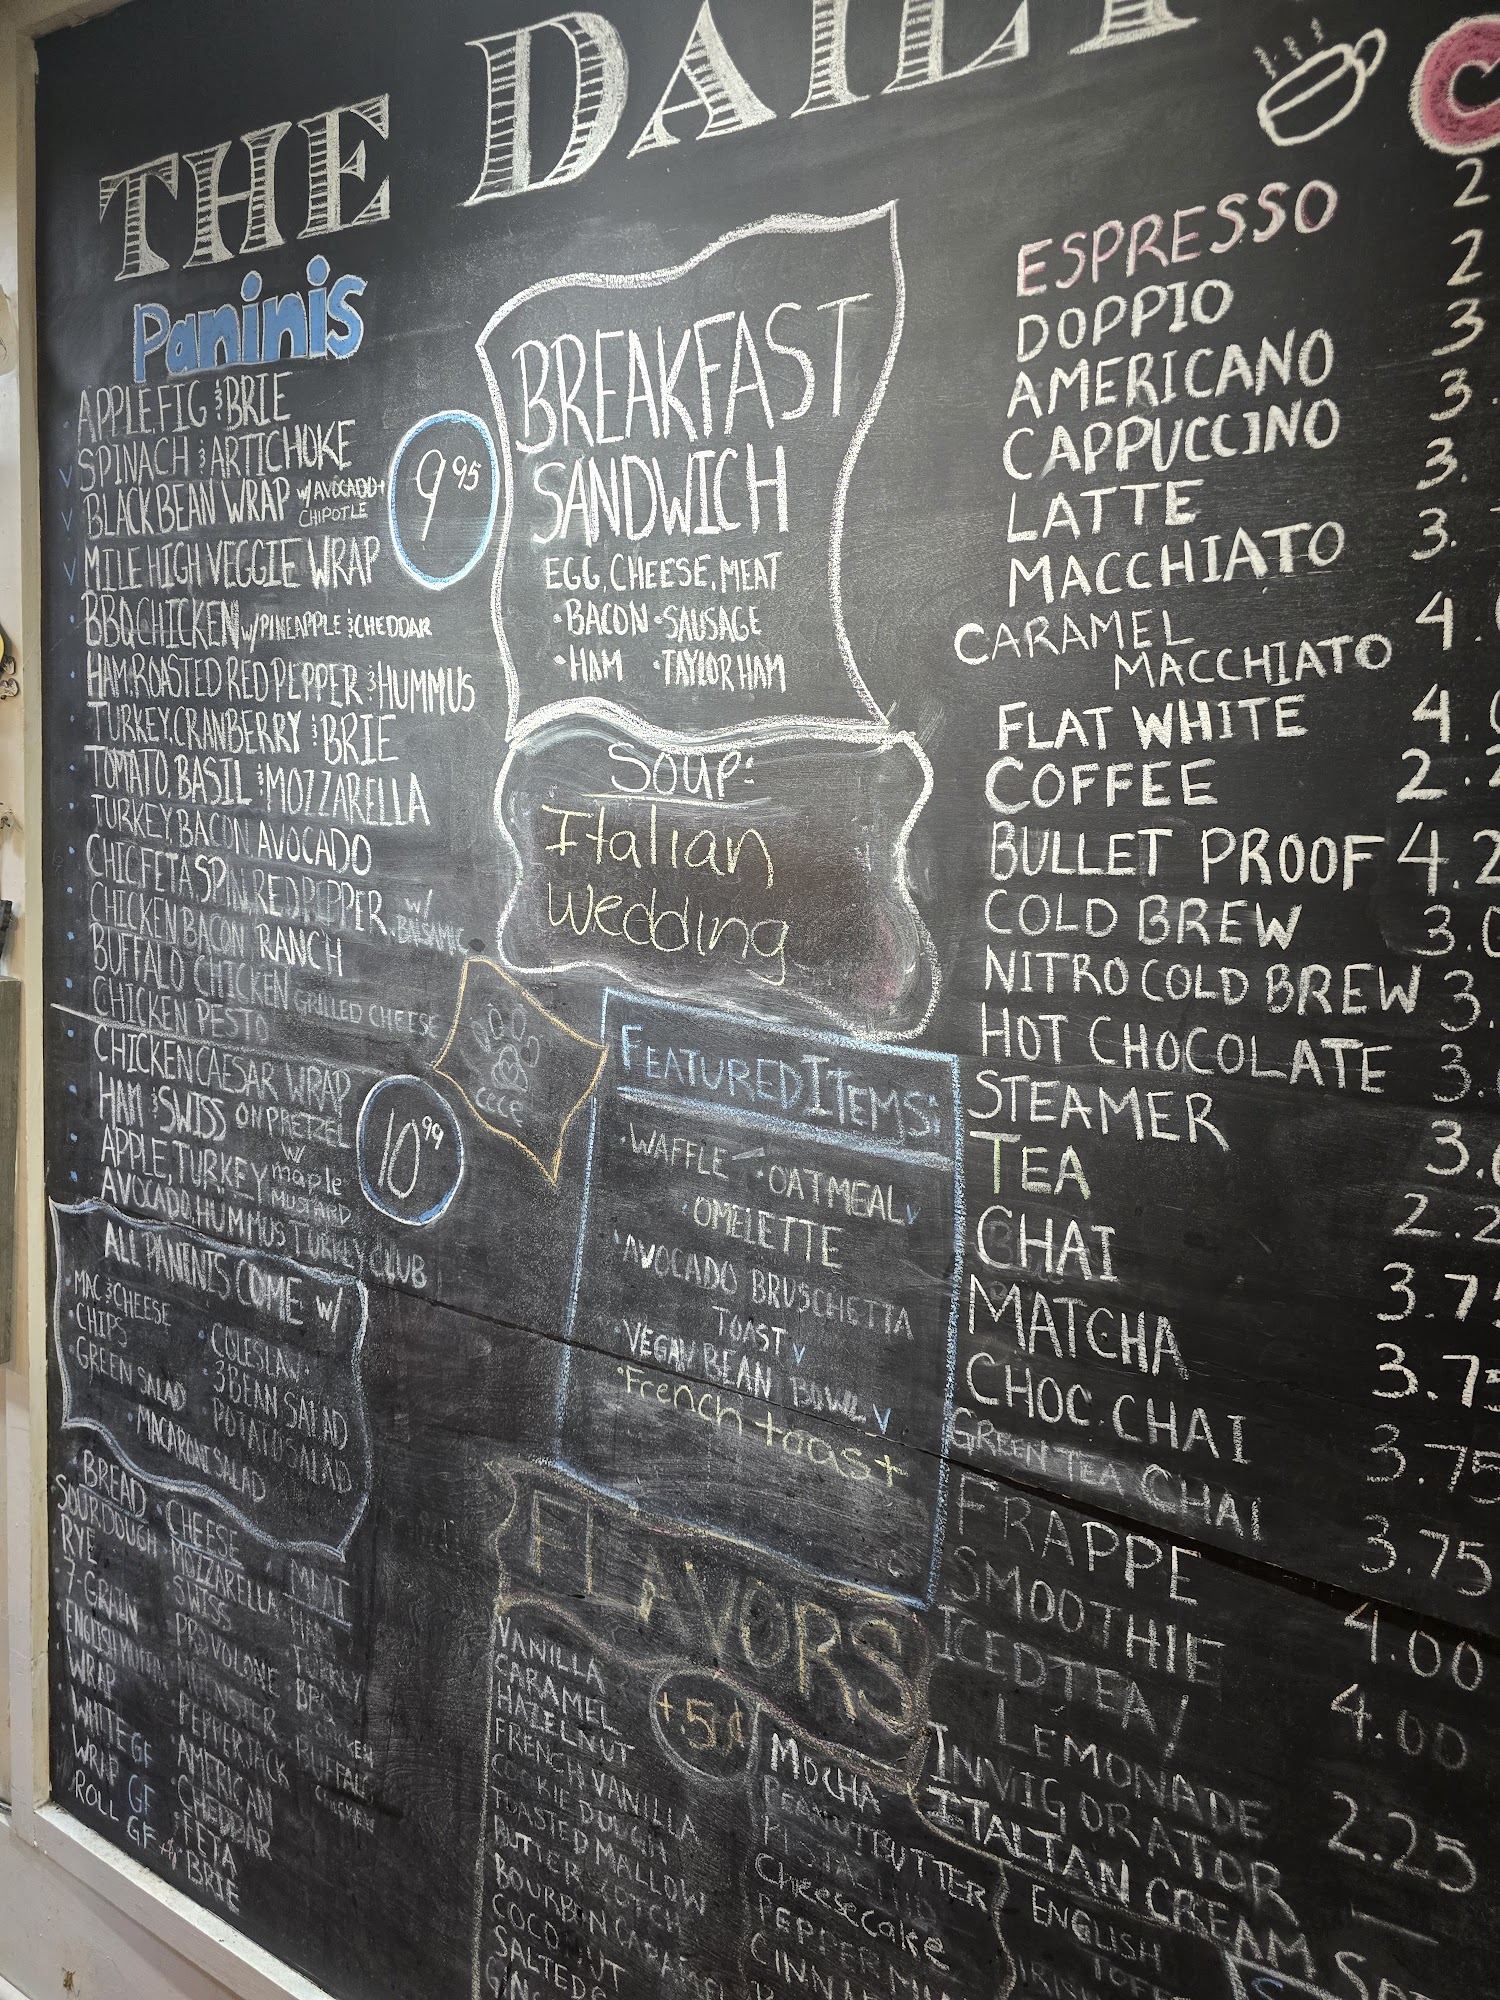 THE DAILY
Paninis
APPLE, FIG & BRIE
SPINACH & ARTICHOKE
BLACK BEAN WRAP w/ AVOCADO +
CHIPOTLE
MILE HIGH VEGGIE WRAP
BBQ CHICKEN w/ PINEAPPLE & CHEDDAR
HAM, ROASTED RED PEPPER & HUMMUS
TURKEY, CRANBERRY & BRIE
TOMATO, BASIL & MOZZARELLA
TURKEY, BACON AVOCADO
CHIC FETA SPIN, RED PEPPER. w/
BALSAMIC
CHICKEN BACON RANCH
BUFFALO CHICKEN GRILLED CHEESE
CHICKEN PESTO
9 95
CHICKEN CAESAR WRAP
HAM & SWISS ON PRETZEL
APPLE, TURKEY w/ maple
MUSTARD
AVOCADO, HUMMUS TURKEY CLUB
10 99
ALL PANINIS COME w/
• MAC & CHEESE
• CHIPS
• GREEN SALAD
• COLESLAW
• 3 BEAN SALAD
POTATO SALAD
• MACARONI SALAD
• BREAD
SOURDOUGH
RYE
7-GRAIN
ENGLISH MUFFIN
WRAP
WHITE GF
WRAP GF
ROLL GF
• CHEESE
MOZZARELLA
SWISS
PROVOLONE
MUENSTER
PEPPERJACK
AMERICAN
CHEDDAR
FETA
BRIE
MEAT
HAM
TURKEY
BBQ
CHICKEN
BUFFALO
CHICKEN
BREAKFAST
SANDWICH
EGG, CHEESE, MEAT
• BACON • SAUSAGE
• HAM • TAYLOR HAM
SOUP:
Italian
Wedding
cece
FEATURED ITEMS:
• WAFFLE • OATMEAL v
• OMELETTE
• AVOCADO BRUSCHETTA
TOAST v
• VEGAN BEAN BOWL v
• French toast
FLAVORS
+.50¢
VANILLA
CARAMEL
HAZELNUT
FRENCH VANILLA
COOKIE DOUGH
TOASTED MALLOW
BUTTERSCOTCH
BOURBON CARAMEL
COCONUT
SALTED
MOCHA
PEANUTBUTTER
Cheesecake
ENGLISH
ESPRESSO 2
DOPPIO 2
AMERICANO 3
CAPPUCCINO 3.
LATTE 3.
MACCHIATO 3.
CARAMEL
MACCHIATO 4.
FLAT WHITE 4.
COFFEE 2.2
BULLET PROOF 4.2
COLD BREW 3.0
NITRO COLD BREW 3.
HOT CHOCOLATE 3.
STEAMER 3.
TEA 2.2
CHAI 3.75
MATCHA 3.75
CHOC CHAI 3.75
GREEN TEA CHAI 3.75
FRAPPE 4.00
SMOOTHIE 4.00
ICED TEA /
LEMONADE 2.25
INVIGORATOR
ITALIAN CREAM